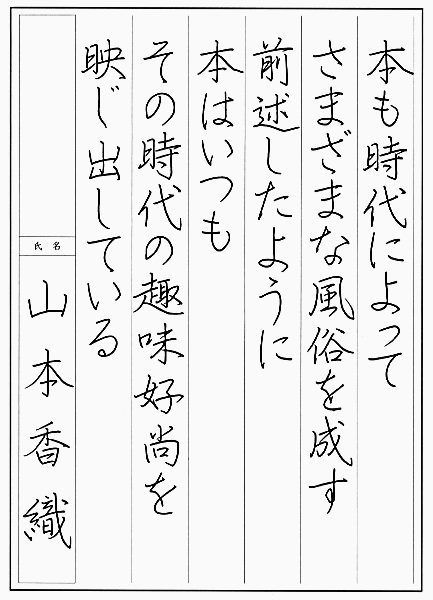 本も時代によって
さまざまな風俗を成す
前述したように
本はいつも
その時代の趣味好尚を
映じ出している
氏名
山本香織